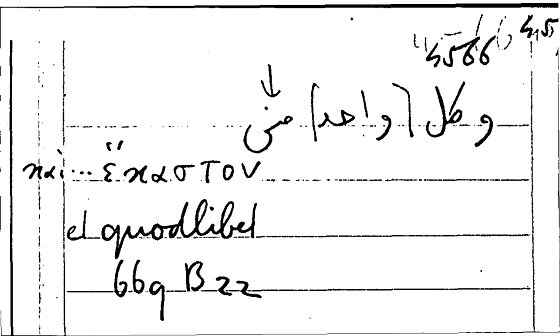 4566
وكل [واحد] منى
καὶ... ἕκαστον
et quodlibet
669 B 22